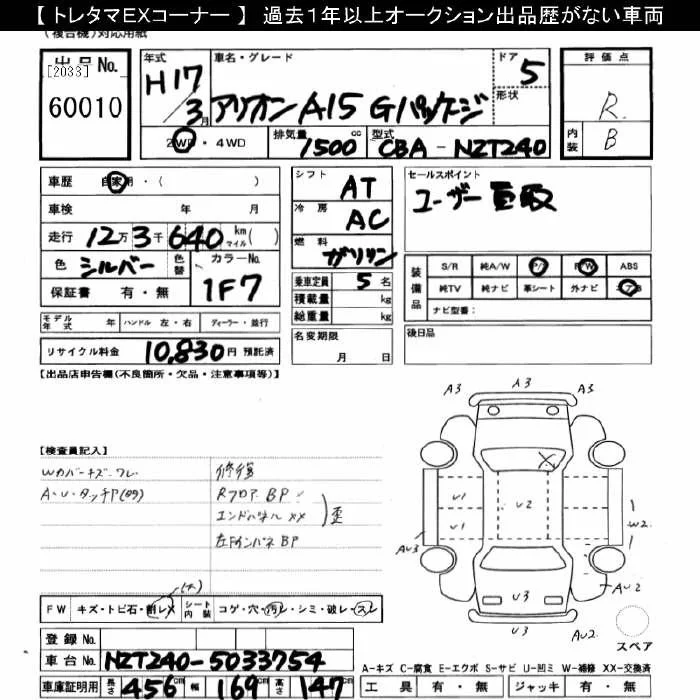 【トレタマＥＸコーナー 】 過去１年以上オークション出品歴がない車両
(複合機)対応用紙
出品No.
[2033]
60010
年式
H17/3月
車名・グレード
アリオン A15 Gパッケージ
ドア
5
形状
2WD・4WD
排気量
1500 cc
型式
CBA - NZT240
評価点
R
内装
B
車歴 自家用・( )
車検 年 月
走行 12万3千640 km マイル( )
色 シルバー 色替
カラーNo.
1F7
保証書 有・無
シフト
AT
冷房
AC
燃料
ガソリン
乗車定員 5 名
積載量 kg
総重量 kg
名変期限
月 日
セールスポイント
ユーザー買取
装備品
S/R 純A/W P/S P/W ABS
純TV 純ナビ 革シート 外ナビ エアB
ナビ型番:
後日品
モデル年式 年 ハンドル 左・右 ディーラー・並行
リサイクル料金 10,830円 預託済
【出品店申告欄(不良箇所・欠品・注意事項等)】
【検査員記入】
Wカバーキズ・ワレ
A・U・タッチP(多)
修復
Rフロア BP
エンドパネル XX
歪
左Rインパネ BP
A3 A3 A3
U1 U2 U1
W2
AU3
AU2
U3
U3
AU2
スペア
FW キズ・トビ石・割レX (大)
シート内装 コゲ・穴・汚レ・シミ・破レ・スレ
登録No.
車台No. NZT240-5033754
車庫証明用 長さ 456 cm 幅 169 cm 高さ 147 cm
A-キズ C-腐食 E-エクボ S-サビ U-凹ミ W-補修 XX-交換済
工具 有・無 ジャッキ 有・無